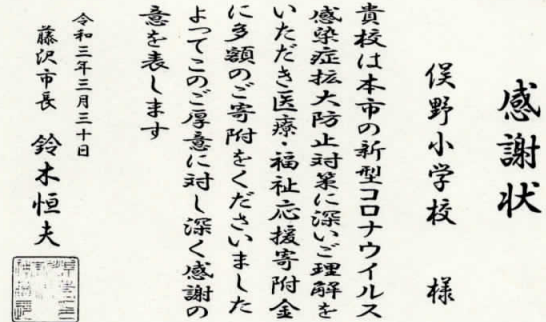 感謝状
俣野小学校 様
貴校は本市の新型コロナウイルス
感染症拡大防止対策に深いご理解を
いただき医療・福祉応援寄附金
に多額のご寄附をくださいました
よってこのご厚意に対し深く感謝の
意を表します
令和三年三月三十日
藤沢市長 鈴木恒夫